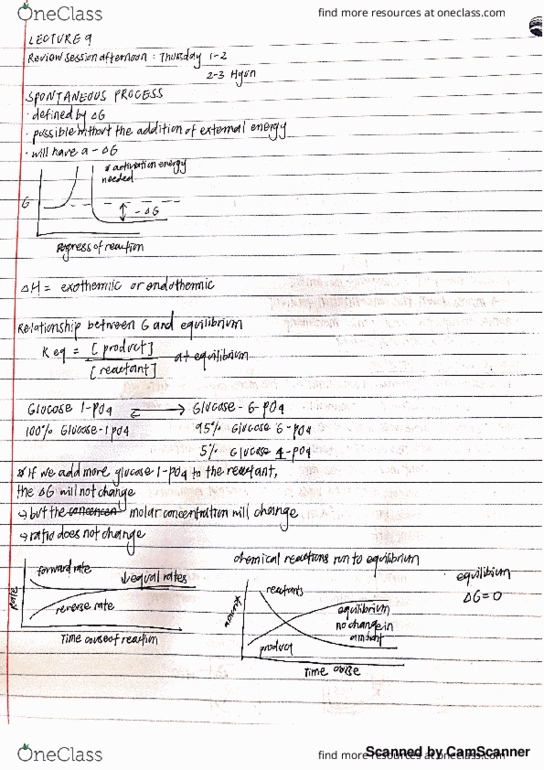 OneClass
find more resources at oneclass.com
LECTURE 9
Review session afternoon : Thursday 1-2
2-3 Hyun
SPONTANEOUS PROCESS
· defined by ΔG
· possible without the addition of external energy
· will have a - ΔG
* activation energy
needed
G
- ΔG
progress of reaction
ΔH = exothermic or endothermic
Relationship between G and equilibrium
Keq = [product] / [reactant] at equilibrium
Glucose 1-PO4 ⇌ Glucose-6-PO4
100% Glucose-1PO4 95% Glucose 6-PO4
5% Glucose 1-PO4
* If we add more glucose 1-PO4 to the reactant,
the ΔG will not change
↳ but the molar concentration will change
↳ ratio does not change
forward rate
equal rates
reverse rate
Rate
Time course of reaction
chemical reactions run to equilibrium
reactants
equilibrium
no change in
amount
product
amount
Time course
equilibium
ΔG = 0
OneClass
find more resources at oneclass.com
Scanned by CamScanner